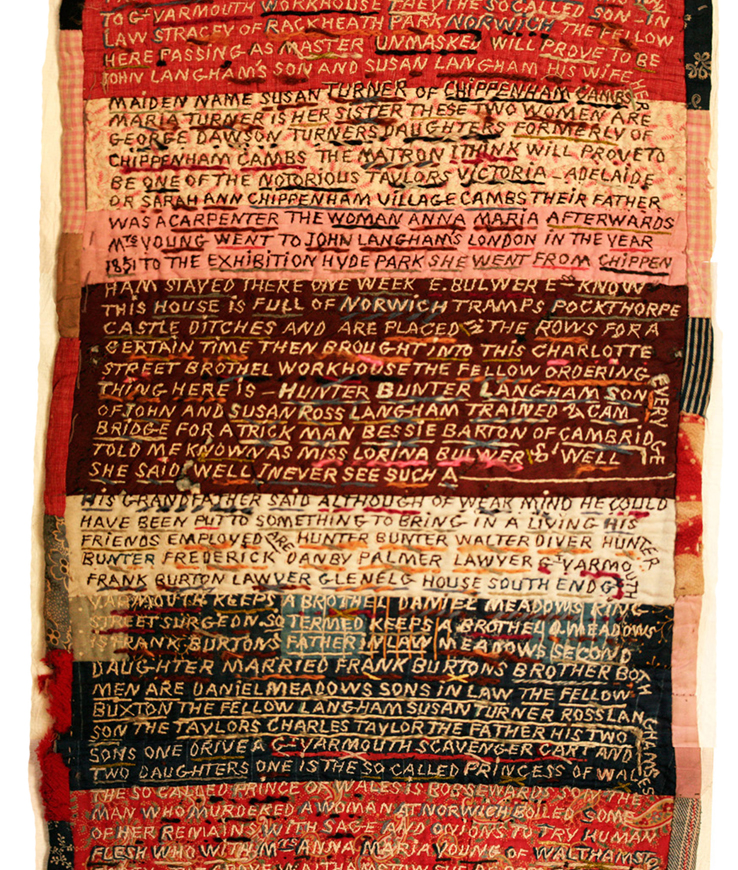 TO Gᵀ YARMOUTH WORKHOUSE THEY THE SO CALLED SON-IN
LAW STRACEY OF RACKHEATH PARK NORWICH THE FELLOW
HERE PASSING AS MASTER UNMASKED WILL PROVE TO BE
JOHN LANGHAM'S SON AND SUSAN LANGHAM HIS WIFE HER
MAIDEN NAME SUSAN TURNER OF CHIPPENHAM CAMBS
MARIA TURNER IS HER SISTER THESE TWO WOMEN ARE
GEORGE DAWSON TURNERS DAUGHTERS FORMERLY OF
CHIPPENHAM CAMBS THE MATRON I THINK WILL PROVE TO
BE ONE OF THE NOTORIOUS TAYLORS VICTORIA – ADELAIDE
OR SARAH ANN CHIPPENHAM VILLAGE CAMBS THEIR FATHER
WAS A CARPENTER THE WOMAN ANNA MARIA AFTERWARDS
Mᵀˢ YOUNG WENT TO JOHN LANGHAM'S LONDON IN THE YEAR
1851 TO THE EXHIBITION HYDE PARK SHE WENT FROM CHIPPEN
HAM STAYED THERE ONE WEEK E. BULWER KNOW
THIS HOUSE IS FULL OF NORWICH TRAMPS POCKTHORPE
CASTLE DITCHES AND ARE PLACED THE ROWS FOR A
CERTAIN TIME THEN BROUGHT INTO THIS CHARLOTTE
STREET BROTHEL WORKHOUSE THE FELLOW ORDERING
THING HERE IS – HUNTER BUNTER LANGHAM SON EVERY
OF JOHN AND SUSAN ROSS LANGHAM TRAINED CAM
BRIDGE FOR A TRICK MAN BESSIE BARTON OF CAMBRIDGE
TOLD ME KNOWN AS MISS LORINA BULWER WELL
SHE SAID WELL I NEVER SEE SUCH A
HIS GRANDFATHER SAID ALTHOUGHT OF WEAK MIND HE COULD
HAVE BEEN PUT TO SOMETHING TO BRING IN A LIVING HIS
FRIENDS EMPLOYED ARE HUNTER BUNTER WALTER DIVER HUNTER
BUNTER FREDERICK DANBY PALMER LAWYER Gᵀ YARMOUTH
FRANK BURTON LAWYER GLENELG HOUSE SOUTH END Gᵀ
YARMOUTH KEEPS A BROTHEL DANIEL MEADOWS KING
STREET SURGEON SO TERMED KEEPS A BROTHEL MEADOWS
IS FRANK BURTONS FATHER IN LAW MEADOWS SECOND
DAUGHTER MARRIED FRANK BURTONS BROTHER BOTH
MEN ARE DANIEL MEADOWS SONS IN LAW THE FELLOW
BUXTON THE FELLOW LANGHAM SUSAN TURNER ROSS LAN
SON THE TAYLORS CHARLES TAYLOR THE FATHER HIS TWO
SONS ONE DRIVE A Gᵀ YARMOUTH SCAVENGER CART AND
TWO DAUGHTERS ONE IS THE SO CALLED PRINCESS OF WALES
THE SO CALLED PRINCE OF WALES IS BOB SEWARDS SON THE
MAN WHO MURDERED A WOMAN AT NORWICH BOILED SOME
OF HER REMAINS WITH SAGE AND ONIONS TO TRY HUMAN
FLESH WHO WITH Mᵀˢ ANNA MARIA YOUNG OF WALTHAMSTOW